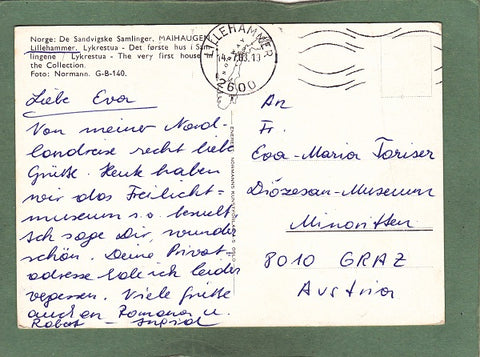 Norge: De Sandvigske Samlinger, MAIHAUGEN
Lillehammer. Lykrestua - Det første hus i Sam-
lingene / Lykrestua - The very first house
the Collection.
Foto: Normann. G-B-140.
LILLEHAMMER
14.7.83.13
2600
Liebe Eva
Von meiner Nord-
landreise recht liebe
Grüße. Heute haben
wir das Freilicht-
museum s.o. besucht
Ich sage Dir, wunder
schön. Deine Privat-
adresse habe ich leider
vergessen. Viele Grüße
auch an Romana u.
Robert - Ingrid
An
Fr.
Eva-Maria Toriser
Diözesan-Museum
Minoriten
8010 GRAZ
Austria